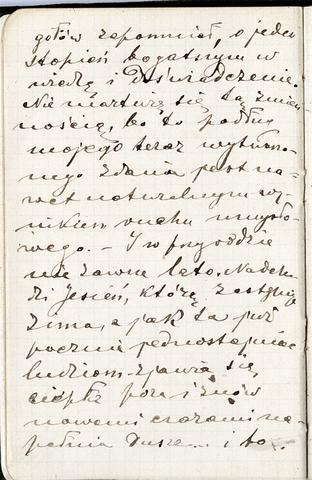 gotów zapomnieć, o jeden
stopień bogatszym w
wiedzę i Doświadczenie.
Nie martwię się tą zmien
nością, bo to podług
mojego teraz wytworzo-
nego zdania jest na-
wet naturalnym wy-
nikiem ruchu umysło-
wego. – I w przyrodzie
nie zawsze lato. Nadcho-
dzi Jesień, którą zastępuje
Zima, a jak ta już
pocznie
ludziom zjawia się
ciepła pora i znów
nowemi czarami na-
pełnia Dusze... i to.